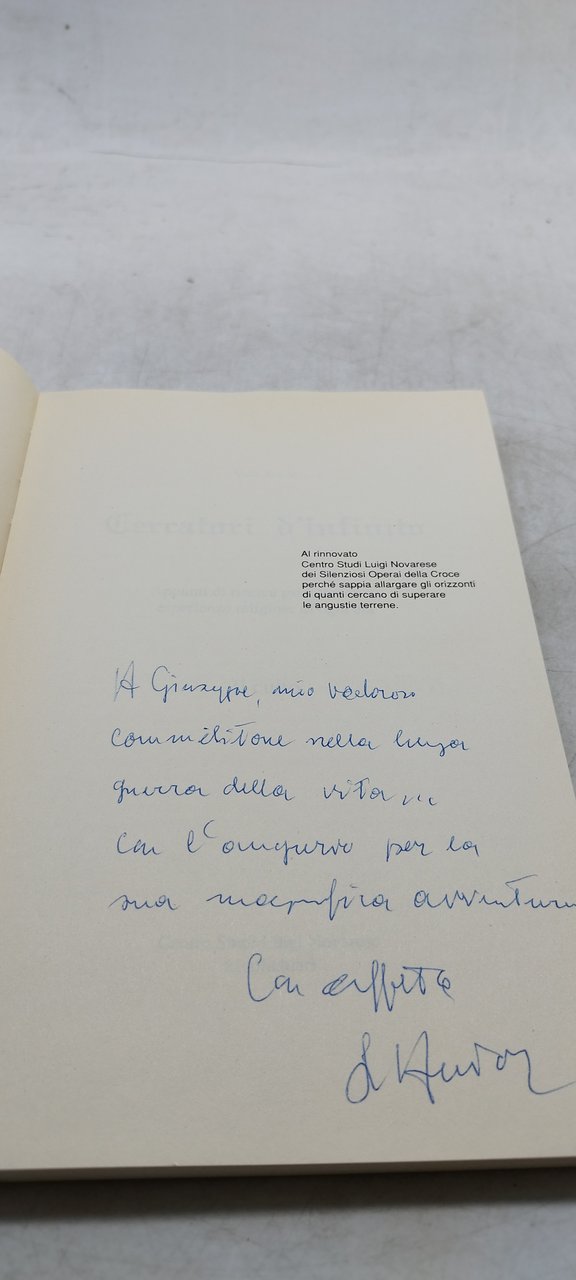 Cercatori d'infinito
Al rinnovato
Centro Studi Luigi Novarese
dei Silenziosi Operai della Croce
perché sappia allargare gli orizzonti
di quanti cercano di superare
le angustie terrene.
A Giuseppe, mio valoroso
commilitone nella lunga
guerra della vita...
con l'augurio per la
sua magnifica avventura
Con affetto